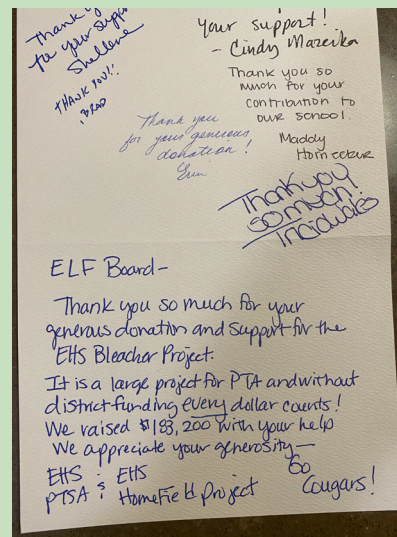 Thank you
for your support
Shellene
THANK YOU!!
BRAD
your support!
- Cindy Mazeika
Thank you so
much for your
contribution to
our school.
Maddy
Thank you
for your generous
donation!
Erin
Thank you
so much!
ELF Board-
Thank you so much for your
generous donation and support for the
EHS Bleacher Project.
It is a large project for PTA and without
district funding every dollar counts!
We raised $183,200 with your help
We appreciate your generosity—
EHS & EHS
PTSA & HomeField Project
Go
Cougars!